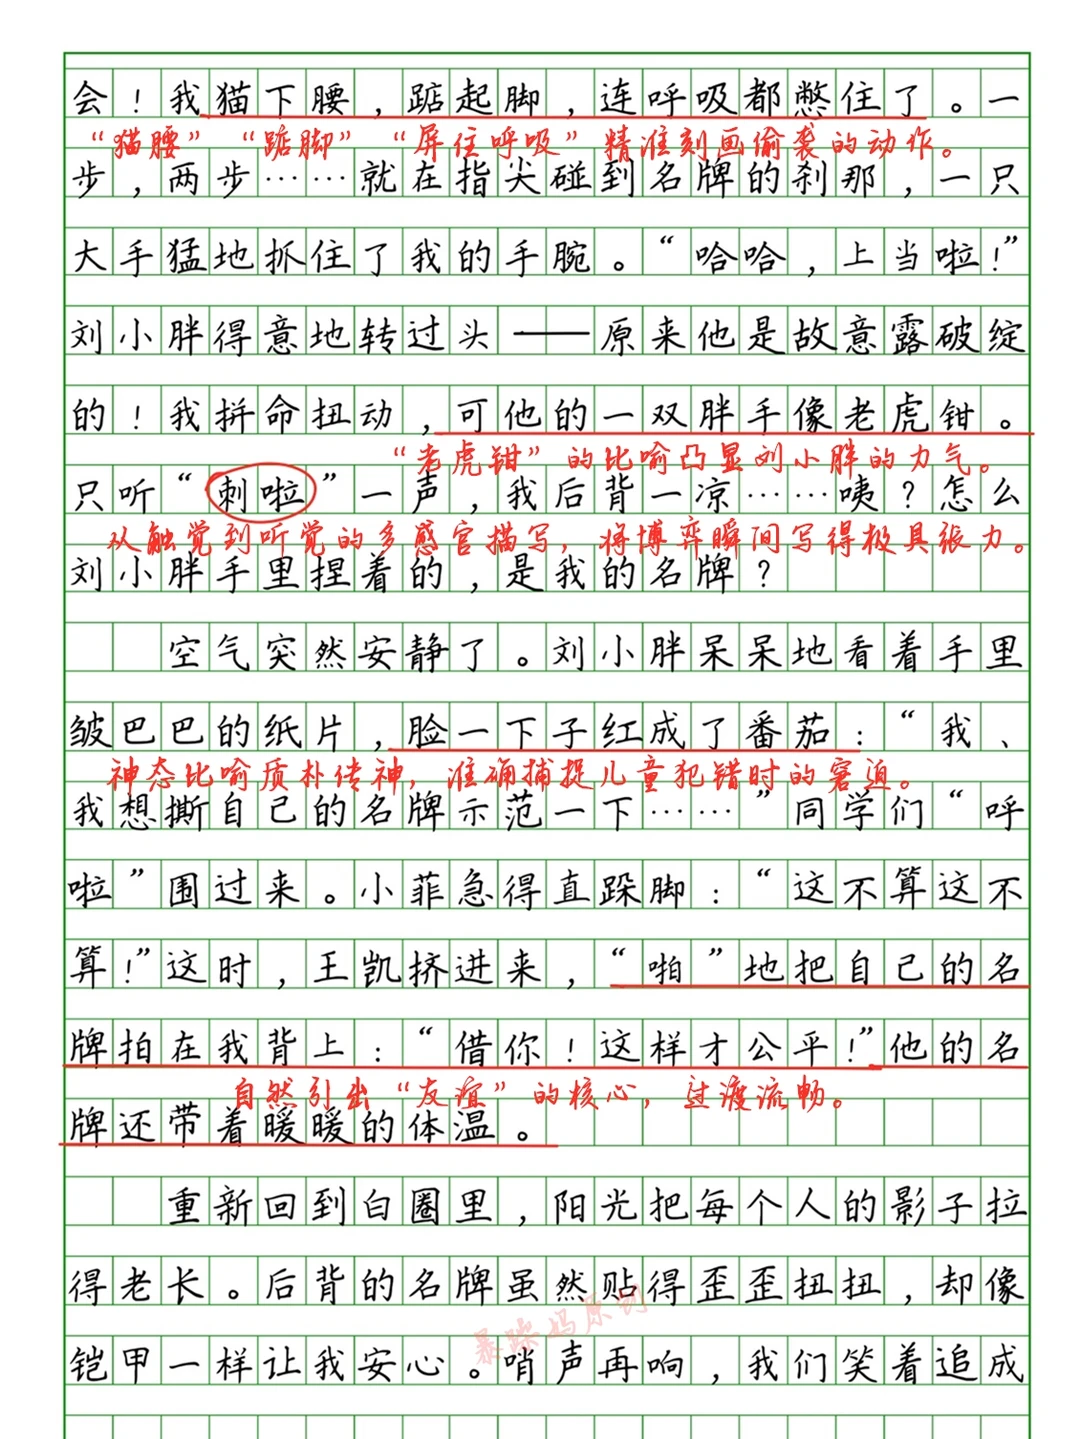 会！我猫下腰，踮起脚，连呼吸都憋住了。一
“猫腰”“踮脚”“屏住呼吸”精准刻画偷袭的动作。
步，两步……就在指尖碰到名牌的刹那，一只
大手猛地抓住了我的手腕。“哈哈，上当啦！”
刘小胖得意地转过头——原来他是故意露破绽
的！我拼命扭动，可他的一双胖手像老虎钳。
“老虎钳”的比喻凸显刘小胖的力气。
只听“刺啦”一声，我后背一凉……咦？怎么
从触觉到听觉的多感官描写，将博弈瞬间写得极具张力。
刘小胖手里捏着的，是我的名牌？
空气突然安静了。刘小胖呆呆地看着手里
皱巴巴的纸片，脸一下子红成了番茄：“我、
神态比喻质朴传神，准确捕捉儿童犯错时的窘迫。
我想撕自己的名牌示范一下……”同学们“呼
啦”围过来。小菲急得直跺脚：“这不算这不
算！”这时，王凯挤进来，“啪”地把自己的名
牌拍在我背上：“借你！这样才公平！”他的名
自然引出“友谊”的核心，过渡流畅。
牌还带着暖暖的体温。
重新回到白圈里，阳光把每个人的影子拉
得老长。后背的名牌虽然贴得歪歪扭扭，却像
暴躁妈原创
铠甲一样让我安心。哨声再响，我们笑着追成